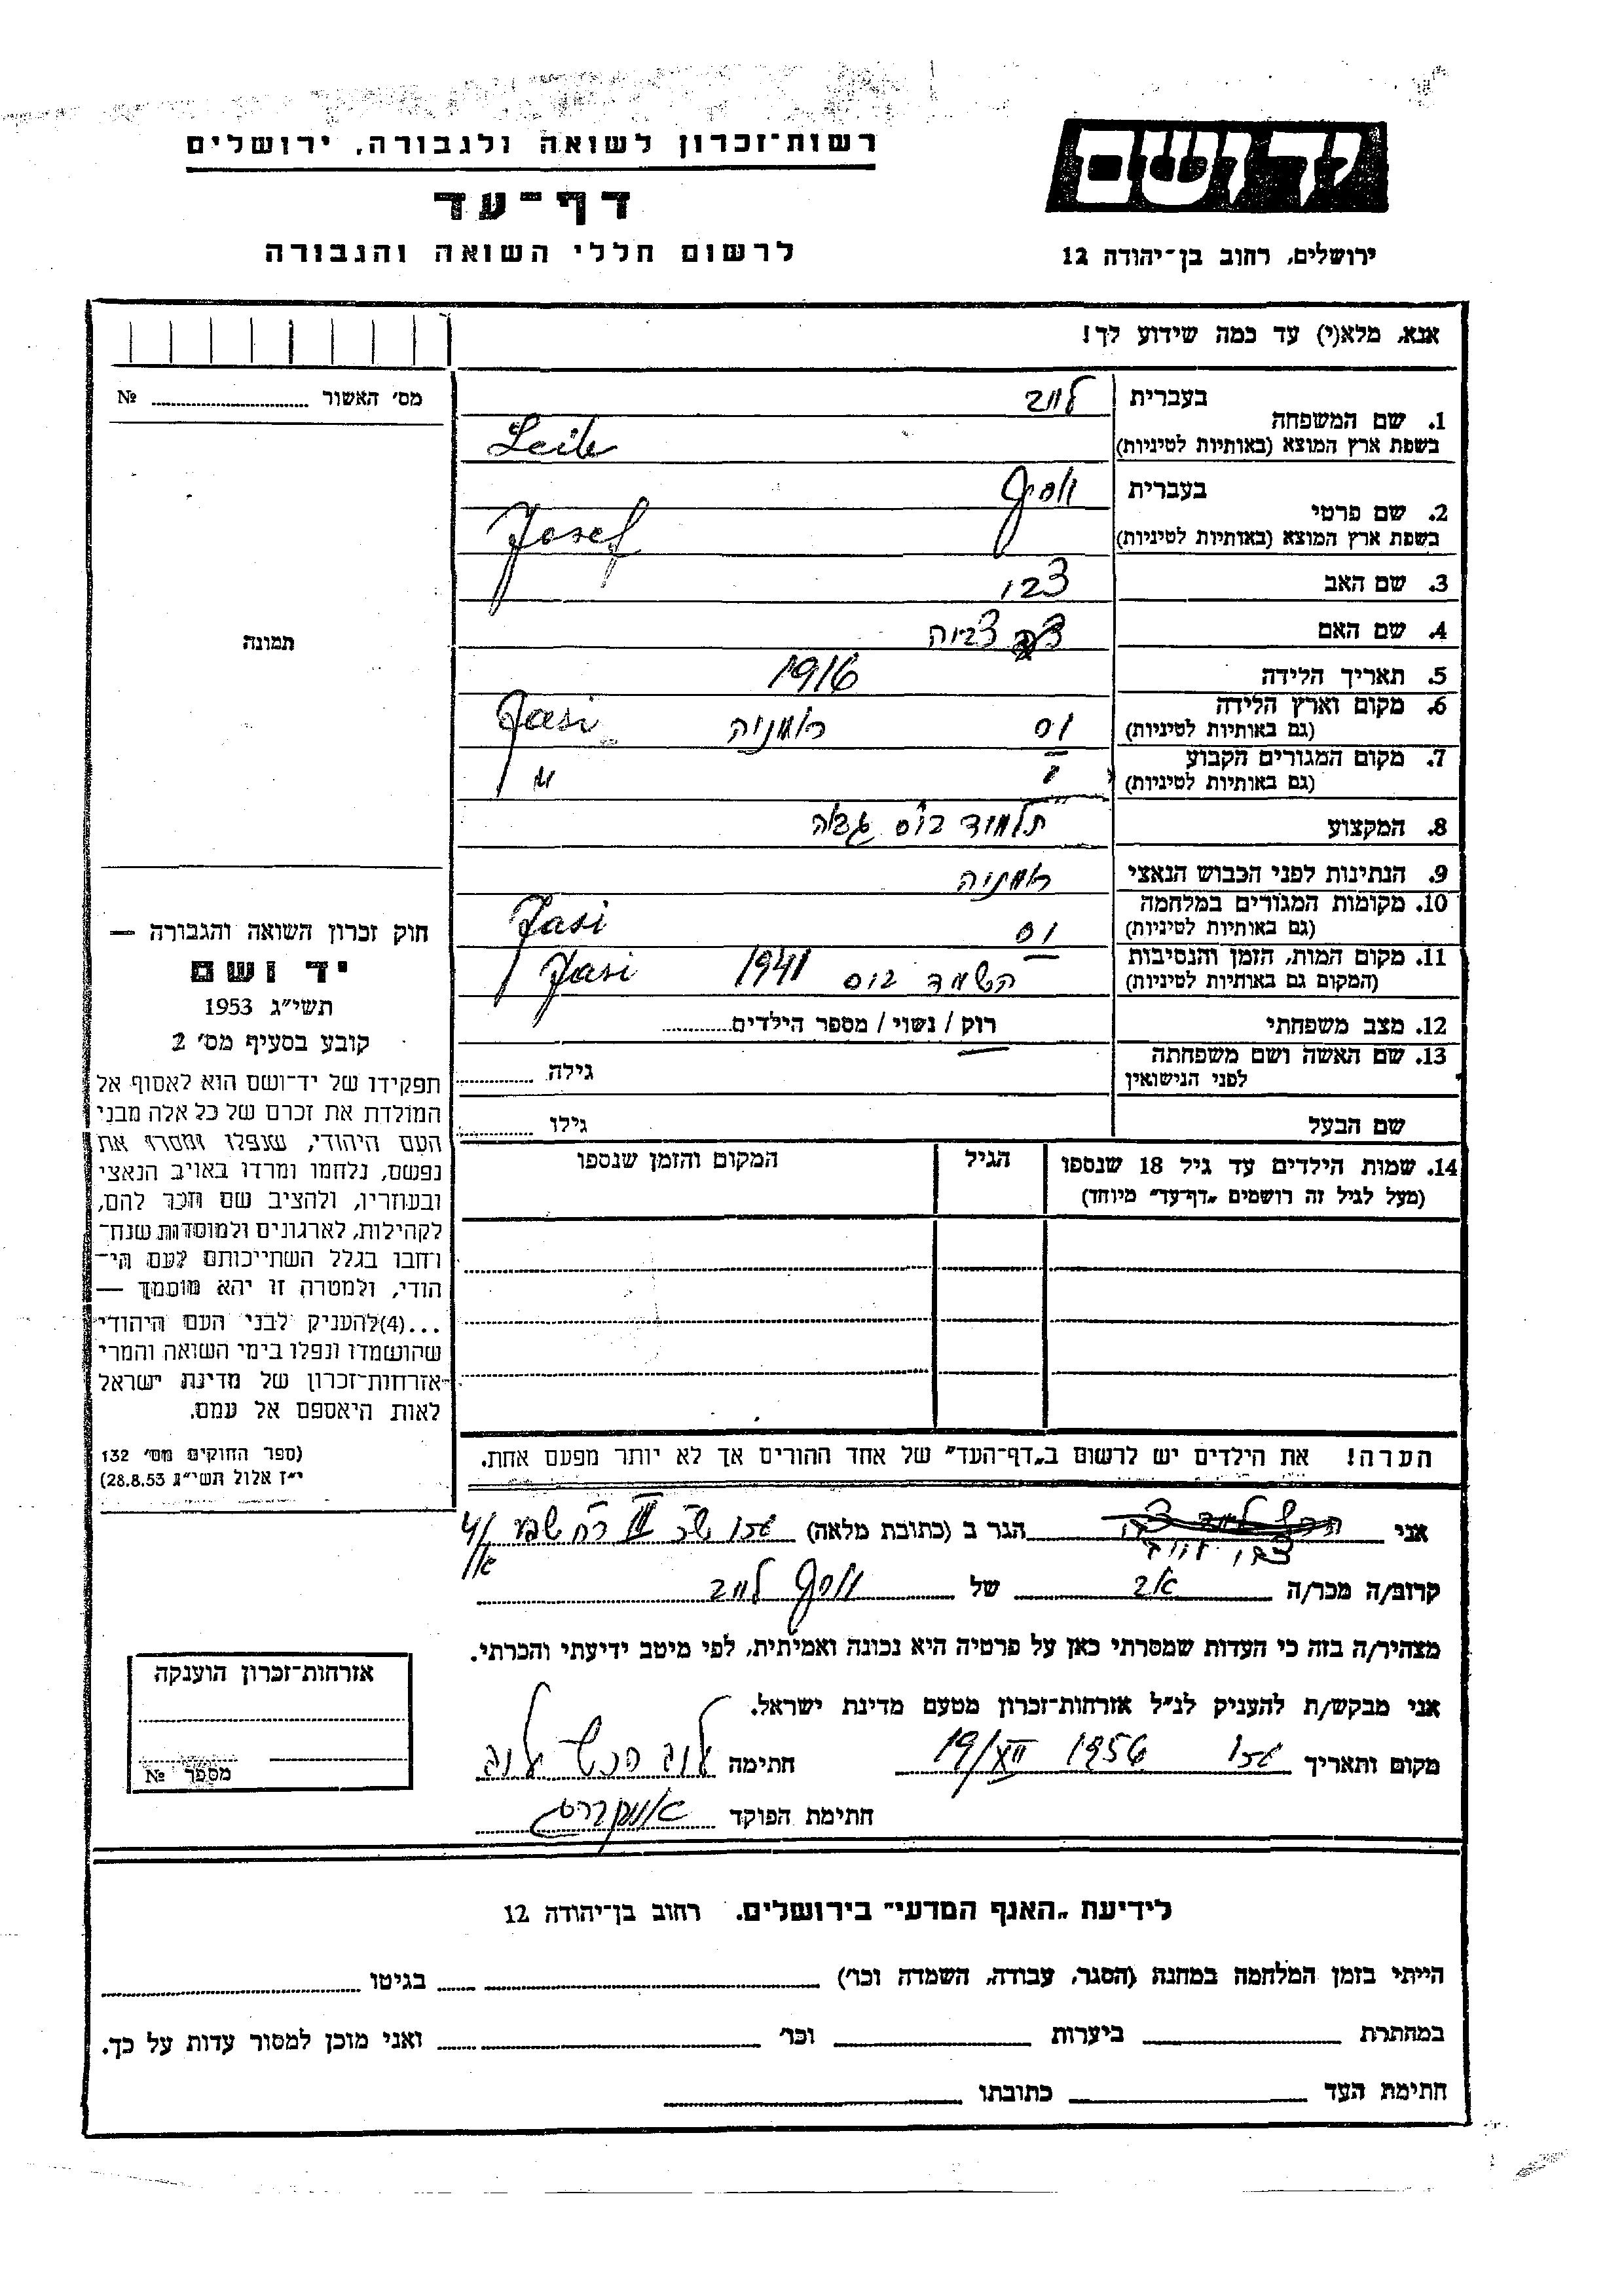 רשות־זכרון לשואה ולגבורה, ירושלים
דף־עד
לרשום חללי השואה והגבורה
ידושם
ירושלים, רחוב בן־יהודה 12
אנא, מלא(י) עד כמה שידוע לך!
מס׳ האשור № 
תמונה
1. שם המשפחה
בעברית לייב
בשפת ארץ המוצא (באותיות לטיניות) Leib
2. שם פרטי
בעברית יוסף
בשפת ארץ המוצא (באותיות לטיניות) Josef
3. שם האב צבי
4. שם האם
5. תאריך הלידה 1916
6. מקום וארץ הלידה
(גם באותיות לטיניות) יסי רומניה Jasi
7. מקום המגורים הקבוע
(גם באותיות לטיניות) " "
8. המקצוע תלמיד
9. הנתינות לפני הכבוש הנאצי רומניה
10. מקומות המגורים במלחמה
(גם באותיות לטיניות) יסי Jasi
11. מקום המות, הזמן והנסיבות
(המקום גם באותיות לטיניות) הושמד 1941 Jasi
12. מצב משפחתי רוק / נשוי / מספר הילדים
13. שם האשה ושם משפחתה
לפני הנישואין גילה
שם הבעל גילו
14. שמות הילדים עד גיל 18 שנספו הגיל המקום והזמן שנספו
(מעל לגיל זה רושמים „דף־עד״ מיוחד)
הערה! את הילדים יש לרשום ב„דף־העד״ של אחד ההורים אך לא יותר מפעם אחת.
חוק זכרון השואה והגבורה —
יד ושם
תשי״ג 1953
קובע בסעיף מס׳ 2
תפקידו של יד־ושם הוא לאסוף אל
המולדת את זכרם של כל אלה מבני
העם היהודי, שנפלו ומסרו את
נפשם, נלחמו ומרדו באויב הנאצי
ובעוזריו, ולהציב שם וזכר להם,
לקהילות, לארגונים ולמוסדות שנח־
רבו בגלל השתייכותם לעם הי־
הודי, ולמטרה זו יהא מוסמך —
...(4)להעניק לבני העם היהודי
שהושמדו ונפלו בימי השואה והמרי
אזרחות־זכרון של מדינת ישראל
לאות היאספם אל עמם.
(ספר החוקים מס׳ 132
י״ז אלול תשי״ג 28.8.53)
אני הגר ב (כתובת מלאה)
קרוב/ה מכר/ה אב של יוסף לייב
מצהיר/ה בזה כי העדות שמסרתי כאן על פרטיה היא נכונה ואמיתית, לפי מיטב ידיעתי והכרתי.
אני מבקש/ת להעניק לנ״ל אזרחות־זכרון מטעם מדינת ישראל.
מקום ותאריך 19/XII 1956 חתימה
חתימת הפוקד
אזרחות־זכרון הוענקה
מספר №
לידיעת „האגף המדעי״ בירושלים. רחוב בן־יהודה 12
הייתי בזמן המלחמה במחנה (הסגר, עבודה, השמדה וכו׳) בגיטו
במחתרת ביערות וכו׳ ואני מוכן למסור עדות על כך.
חתימת העד כתובתו